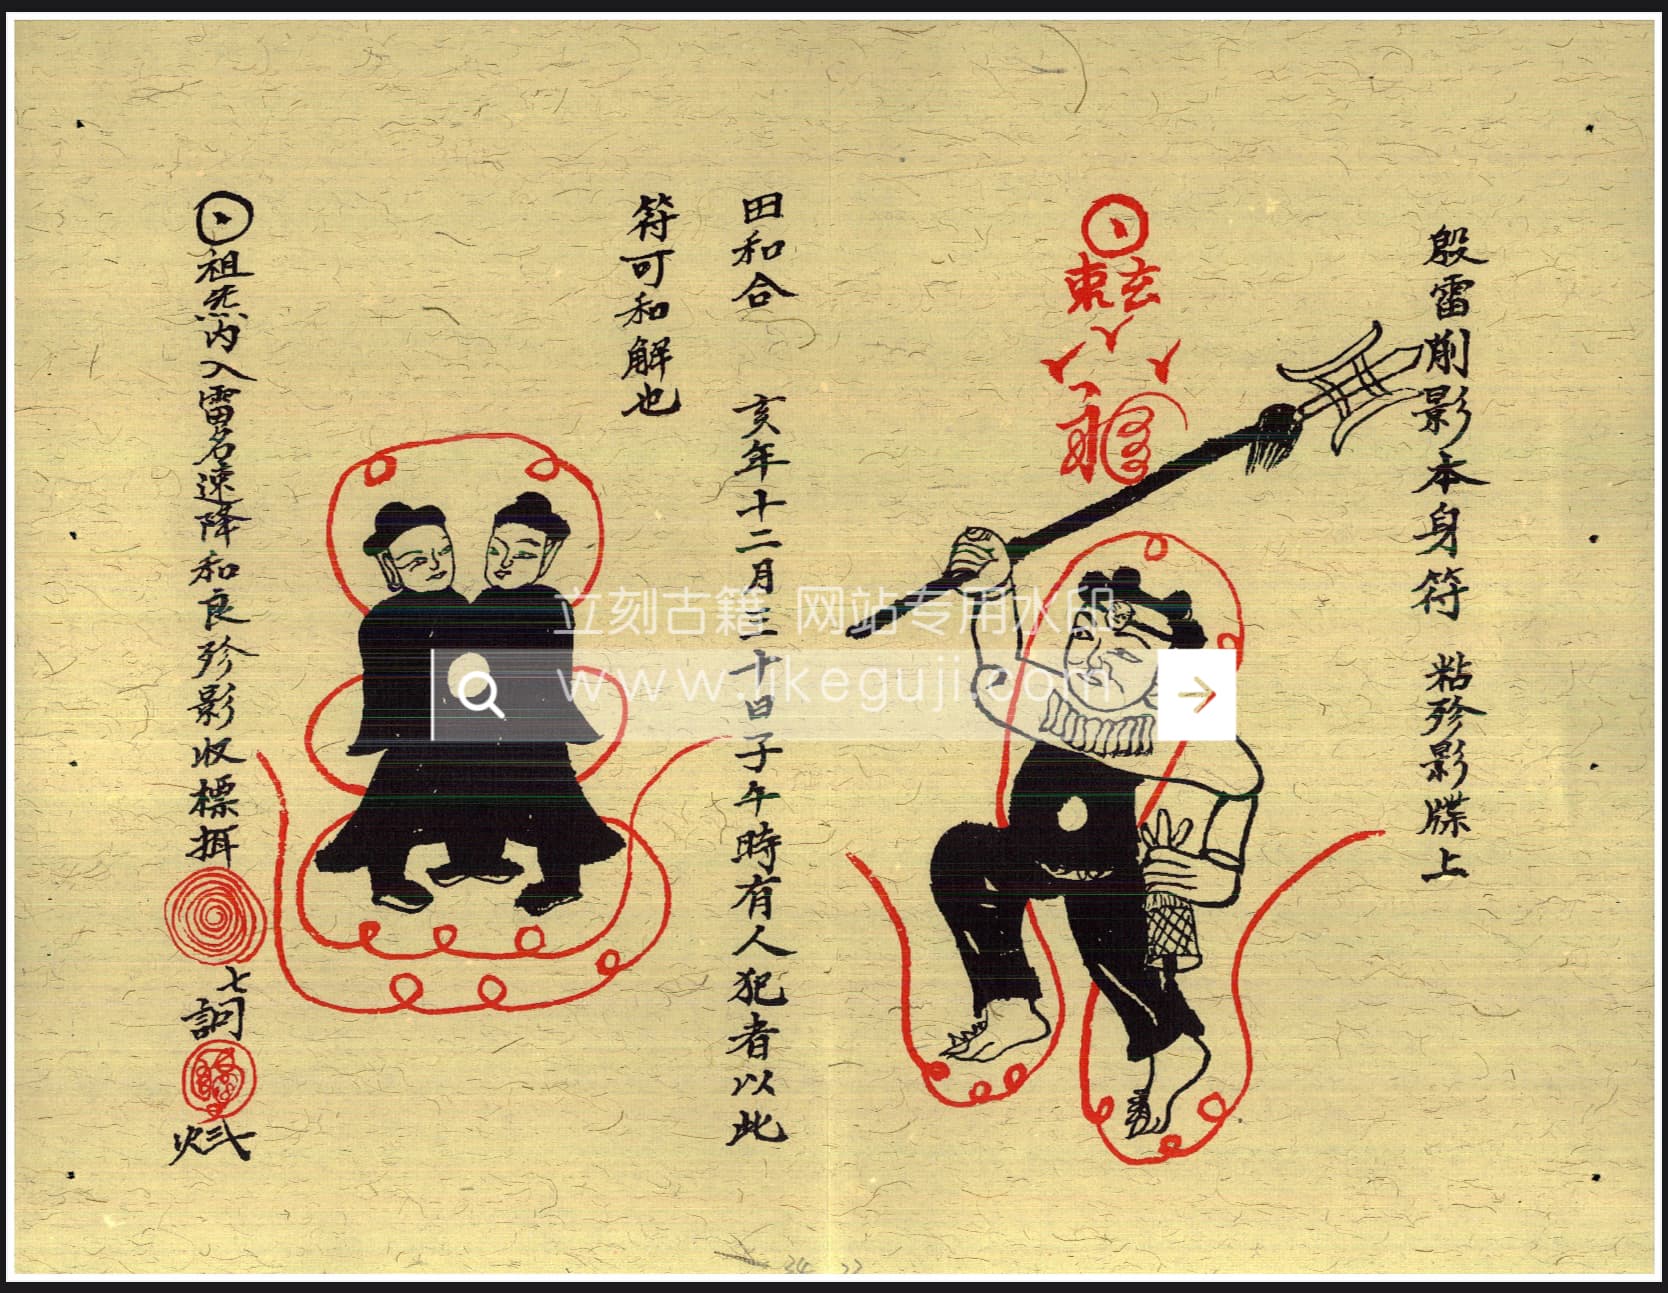 殷雷削影本身符 粘殄影牒上
玄
東
田和合 亥年十二月三十日子午時有人犯者以此
符可和解也
祖炁内入雷名速降和良殄影収標揖
七訶
立刻古籍 网站专用水印
www.ljkeguji.com